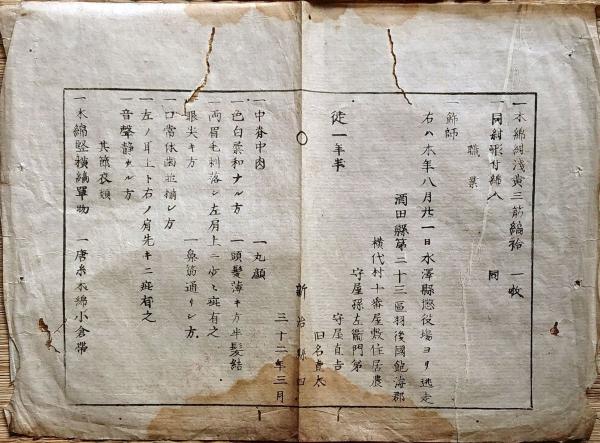 一木綿紺浅黄三筋縞袷　一枚
一同紺形付綿入　同
職業
一飾師
右ハ本年八月廿一日水澤縣懲役場ヨリ逃走
酒田縣第二十三區羽後國飽海郡
横代村十番屋敷住居農
守屋孫左衞門弟
守屋直吉
旧名貴太
徒一年半
新治縣
三十二年三月
一中脊中肉　一丸顔
一色白柔和ナル方　一頭髪薄キ方半髪結
一両眉毛
左肩上ニ少シ斑有之
一眼尖キ方　一鼻筋通リシ方
一口常体歯並揃シ方
一左ノ耳上ト右ノ肩先キニ斑有之
一音聲静カナル方
其節衣類
一木綿竪横縞單物　一唐糸木綿小倉帯